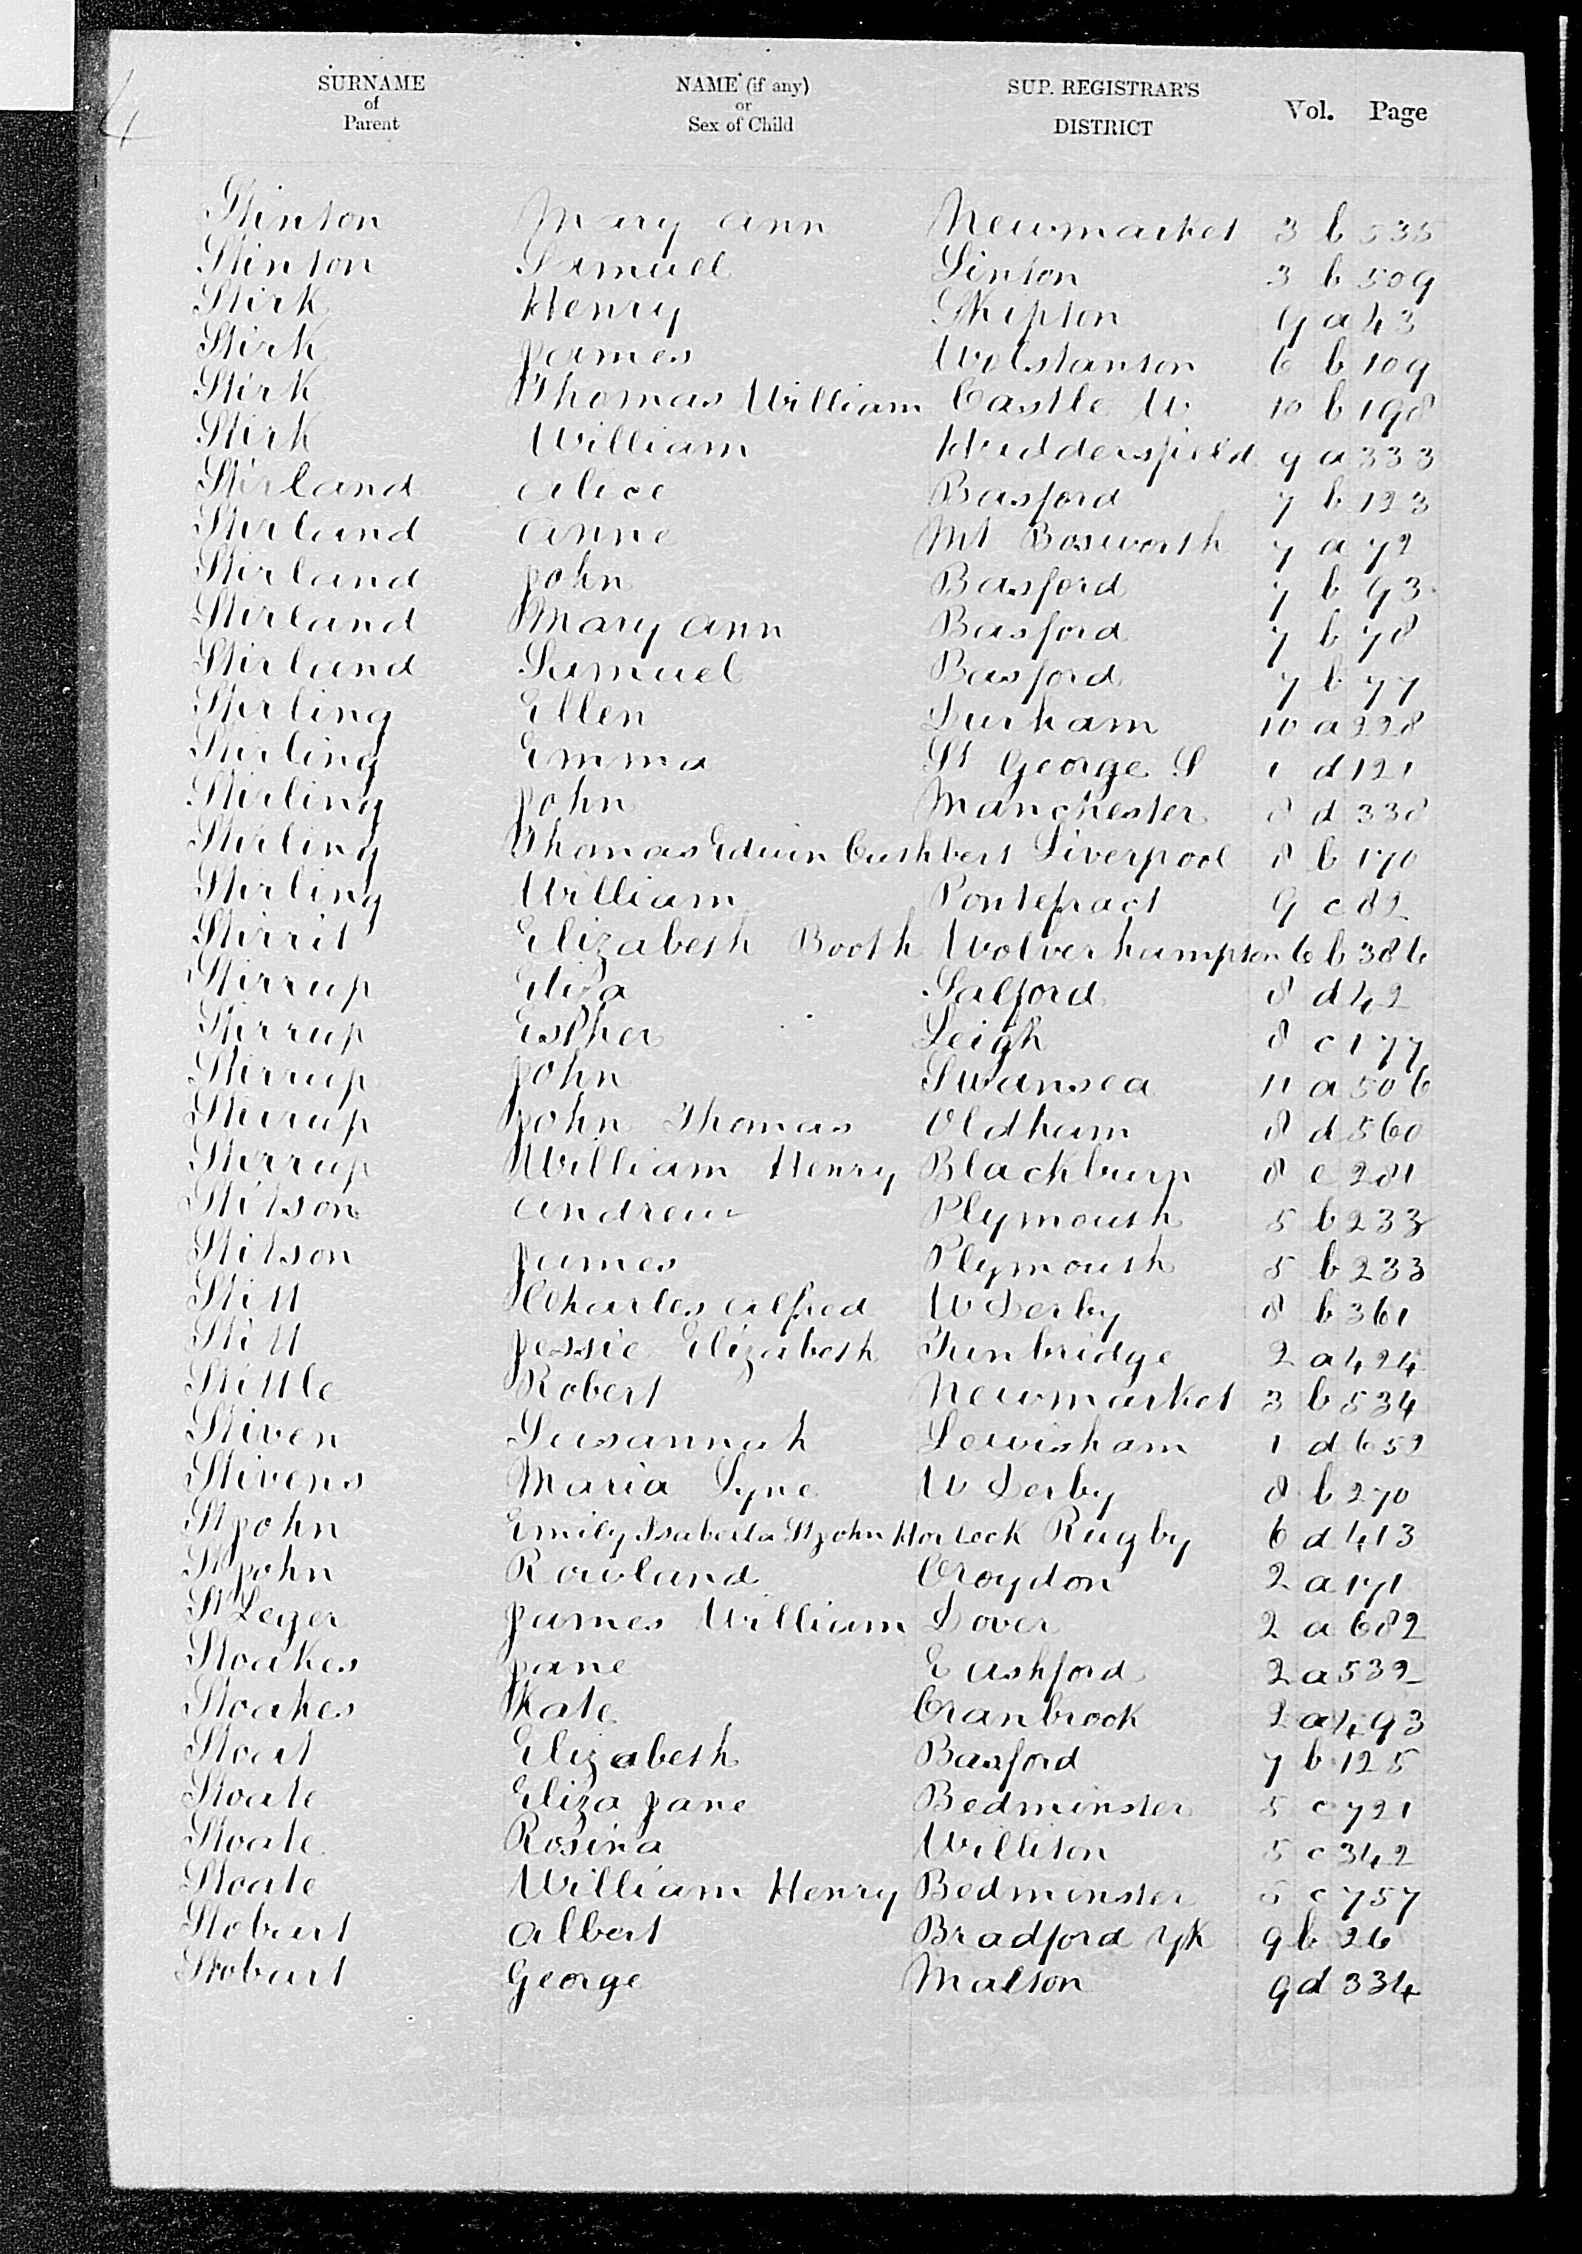 SURNAME of Parent NAME (if any) or Sex of Child SUP. REGISTRAR'S DISTRICT Vol. Page
Stinton Mary Ann Newmarket 3 b 535
Stinton Samuel Linton 3 b 509
Stirk Henry Skipton 9 a 43
Stirk James Wolstanton 6 b 109
Stirk Thomas William Castle W 10 b 198
Stirk William Huddersfield 9 a 333
Stirland Alice Basford 7 b 123
Stirland Anne Mt Bosworth 7 a 72
Stirland John Basford 7 b 93
Stirland Mary Ann Basford 7 b 78
Stirland Samuel Basford 7 b 77
Stirling Ellen Durham 10 a 228
Stirling Emma St George S 1 d 121
Stirling John Manchester 8 d 338
Stirling Thomas Edwin Cuthbert Liverpool 8 b 170
Stirling William Pontefract 9 c 82
Stirrit Elizabeth Booth Wolverhampton 6 b 386
Stirrup Eliza Salford 8 d 42
Stirrup Esther Leigh 8 c 177
Stirrup John Swansea 11 a 506
Stirrup John Thomas Oldham 8 d 560
Stirrup William Henry Blackburn 8 e 281
Stitson Andrew Plymouth 5 b 233
Stitson James Plymouth 5 b 233
Stitt Charles Alfred W Derby 8 b 361
Stitt Jessie Elizabeth Tunbridge 2 a 424
Stittle Robert Newmarket 3 b 534
Stiven Susannah Lewisham 1 d 652
Stivens Maria Lyne W Derby 8 b 270
St John Emily Isabella St John Horlock Rugby 6 d 413
St John Rowland Croydon 2 a 171
St Leger James William Dover 2 a 682
Stoakes Jane E Ashford 2 a 532
Stoakes Kate Cranbrook 2 a 493
Stoat Elizabeth Basford 7 b 125
Stoate Eliza Jane Bedminster 5 c 721
Stoate Rosina Williton 5 c 342
Stoate William Henry Bedminster 5 c 757
Stobart Albert Bradford Yk 9 b 26
Stobart George Malton 9 d 334